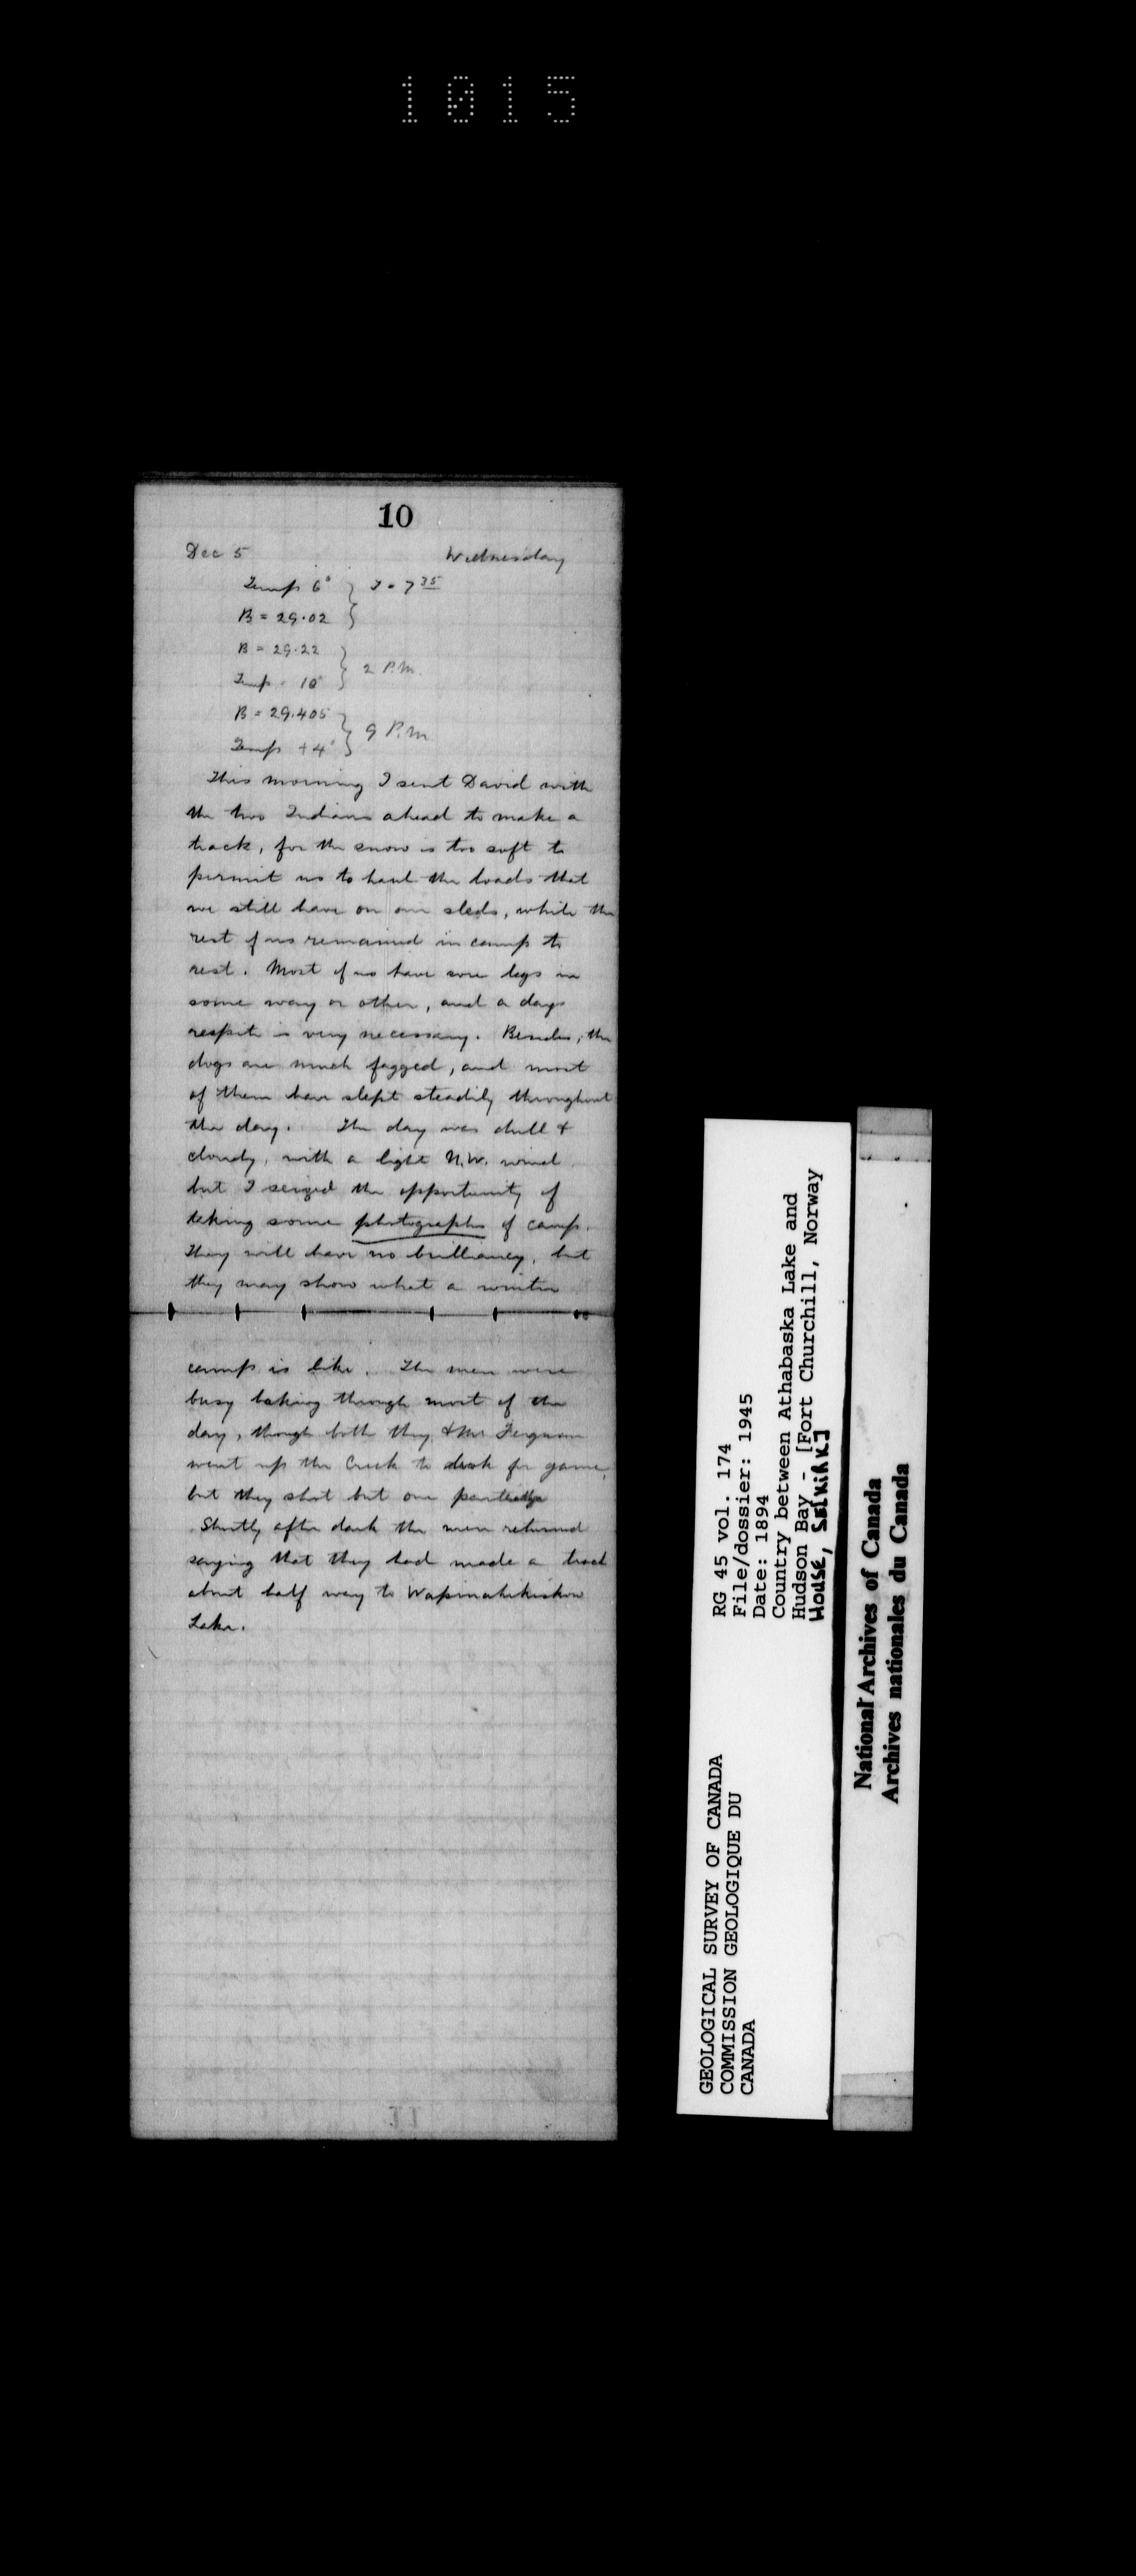 1015
10
Dec 5 Wednesday
Temp 6° } T = 7 35
B = 29.02
B = 29.22 } 2 P.M.
Temp = 10°
B = 29.405 } 9 P.M
Temp +4°
This morning I sent David with
the two Indians ahead to make a
track, for the snow is too soft to
permit us to haul the loads that
we still have on our sleds, while the
rest of us remained in camp to
rest. Most of us have sore legs in
some way or other, and a days
respite is very necessary. Besides, the
dogs are much fagged, and most
of them have slept steadily throughout
the day. The day was dull &
cloudy, with a light N.W. wind
but I seized the opportunity of
taking some photographs of camp.
They will have no brilliancy, but
they may show what a winter
camp is like. The men were
busy baking through most of the
day, though both they & Mr Ferguson
went up the Creek to look for game,
but they shot but one partridge
Shortly after dark the men returned
saying that they had made a track
about half way to
Lake.
11
GEOLOGICAL SURVEY OF CANADA
COMMISSION GEOLOGIQUE DU
CANADA
RG 45 vol. 174
File/dossier: 1945
Date: 1894
Country between Athabaska Lake and
Hudson Bay - [Fort Churchill, Norway
House, SELKIRK]
National Archives of Canada
Archives nationales du Canada